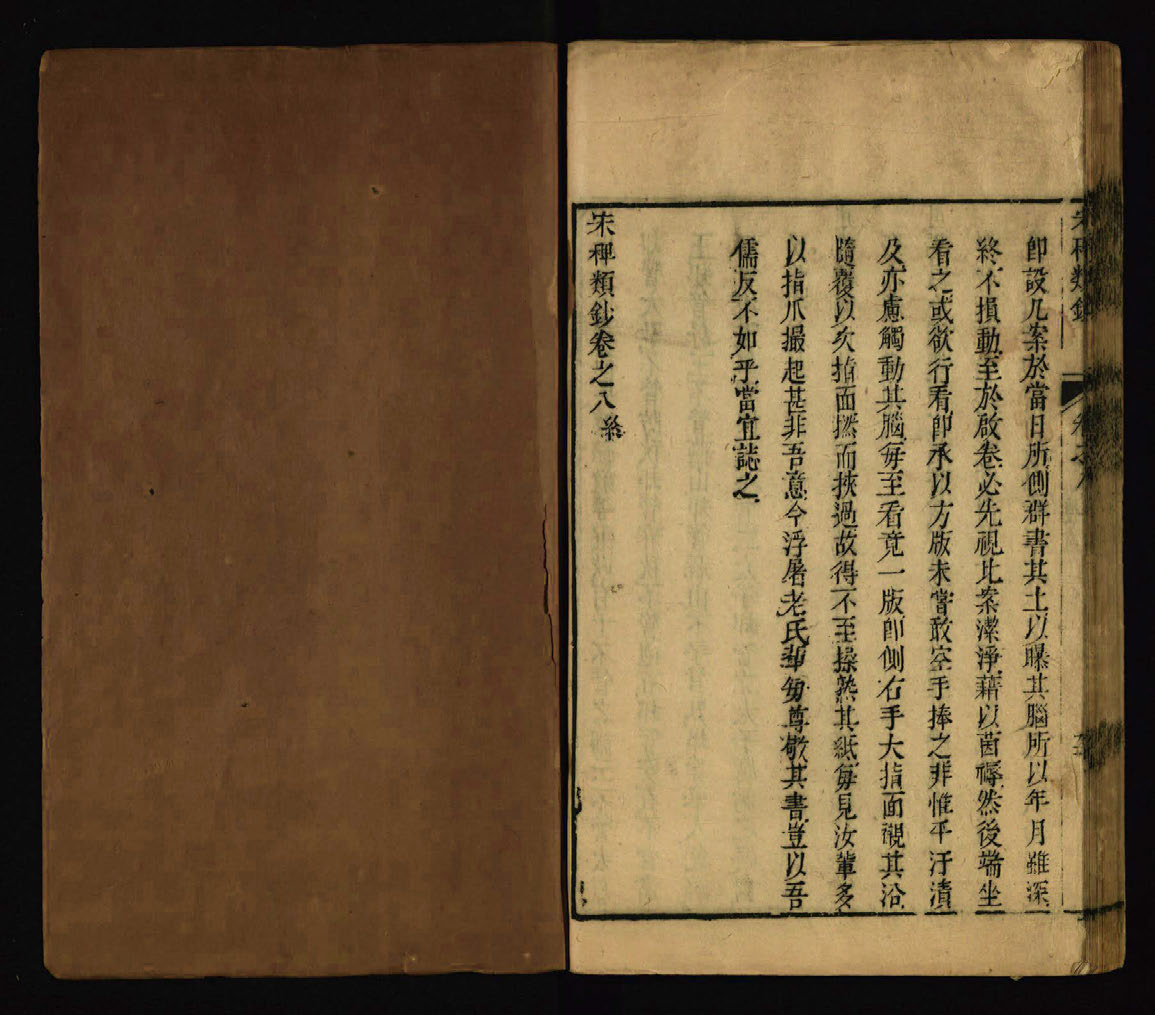 宋稗類鈔
卷之八
即設几案於當日所側群書其上以曝其腦所以年月雖深
終不損動至於啟卷必先視比案潔淨藉以茵褥然後端坐
看之或欲行看即承以方版未嘗敢空手捧之非惟手汙漬
及亦慮觸動其腦每至看竟一版即側右手大指面覩其沿
隨覆以次指面撚而挾過故得不至揉熟其紙每見汝輩多
以指爪撮起甚非吾意今浮屠老氏輩每尊敬其書豈以吾
儒反不如乎當宜誌之
宋稗類鈔卷之八終